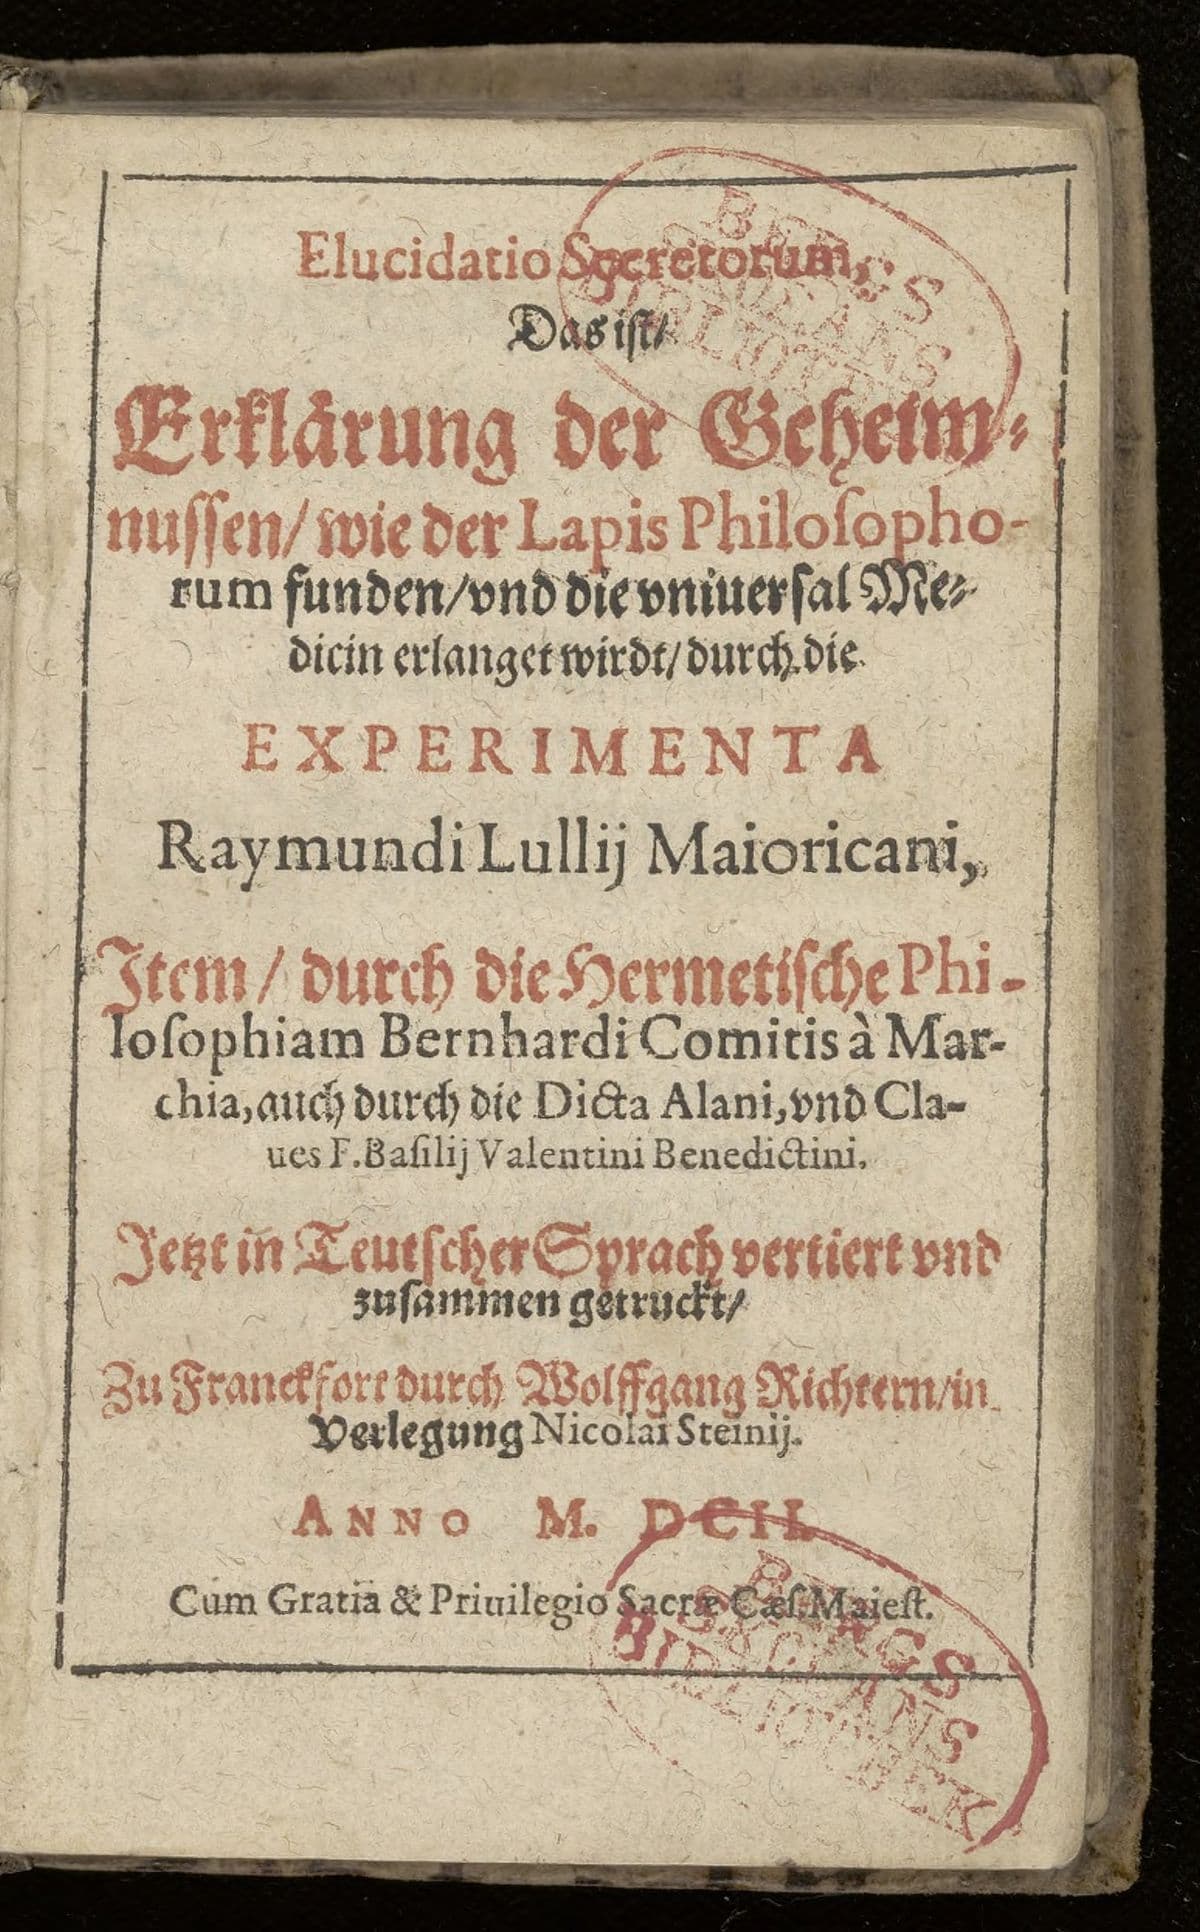 Elucidatio Secretorum,
Das iſt/
Erklärung der Geheim⸗
nuſſen/ wie der Lapis Philoſopho-
rum funden/ vnd die vniuerſal Me⸗
dicin erlanget wirdt/ durch die
EXPERIMENTA
Raymundi Lullij Maioricani,
Item/ durch die Hermetiſche Phi-
loſophiam Bernhardi Comitis à Mar-
chia, auch durch die Dicta Alani, vnd Cla-
ues F. Baſilij Valentini Benedictini.
Jetzt in Teutſcher Sprach vertiert vnd
zuſammen getruckt/
Zu Franckfort durch Wolffgang Richtern/ in
Verlegung Nicolai Steinij.
ANNO M. DCII.
Cum Gratia & Priuilegio Sacræ Cæſ. Maieſt.
BIBLIOTHEK